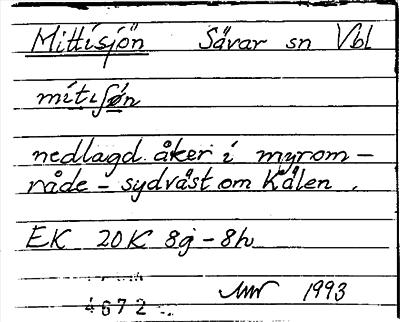 Mittisjön Sävar sn Vbl
mitiʃøn
nedlagd åker i myrom-
råde - sydväst om Kålen.
EK 20K 8g-8h
1993
4672